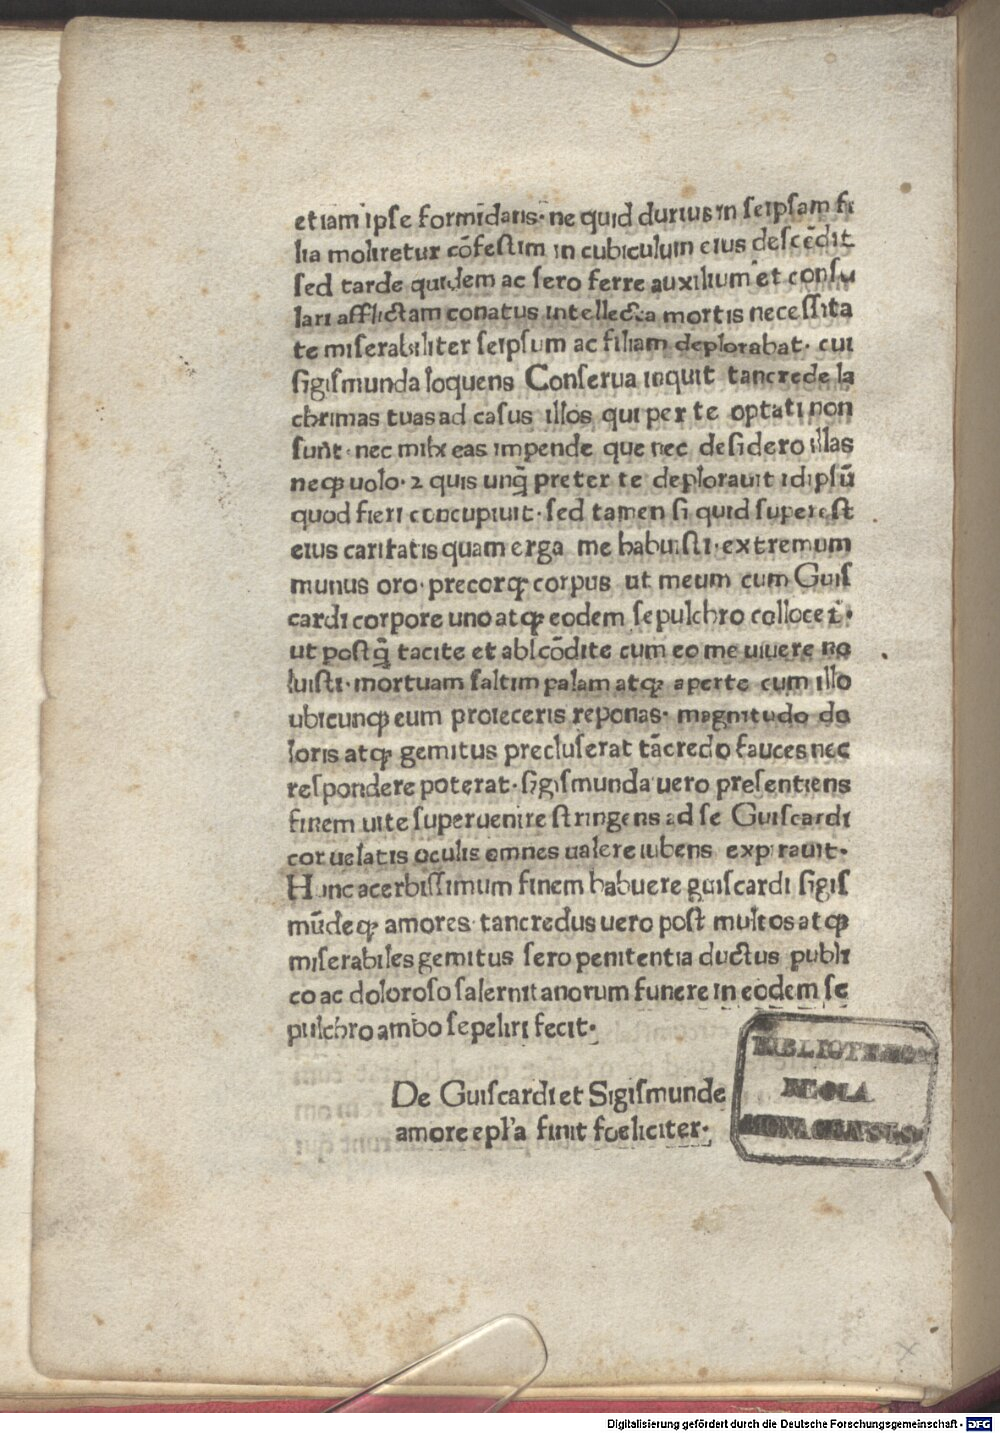 etiam ipse formidans· ne quid durius in seipsam fi
lia moliretur cōfestim in cubiculum eius descēdit
sed tarde quidem ac sero ferre auxilium et conso
lari afflictam conatus intellecta mortis necessita
te miserabiliter seipsum ac filiam deplorabat· cui
sigismunda loquens Conserua inquit tancrede la
chrimas tuas ad casus illos qui per te optati non
sunt· nec mihi eas impende que nec desidero illas
neqꝫ uolo· ⁊ quis unq̄ preter te deplorauit id ipsū
quod fieri concupiuit· sed tamen si quid superest
eius caritatis quam erga me habuisti· extremum
munus oro· precorqꝫ corpus ut meum cum Guis
cardi corpore uno atqꝫ eodem sepulchro collocet·
ut postq̄ tacite et abscōdite cum eo me uiuere no
luisti· mortuam saltim palam atqꝫ aperte cum illo
ubicunqꝫ eum proieceris reponas· magnitudo do
loris atqꝫ gemitus precluserat tācredo fauces nec
respondere poterat· sigismunda uero presentiens
finem uite superuenire stringens ad se Guiscardi
cor uelatis oculis omnes ualere iubens expirauit·
Hunc acerbissimum finem habuere guiscardi sigis
mūdeqꝫ amores· tancredus uero post multos atqꝫ
miserabiles gemitus sero penitentia ductus publi
co ac doloroso salernitanorum funere in eodem se
pulchro ambo sepeliri fecit·
De Guiscardi et Sigismunde
amore epl'a finit foeliciter·
BIBLIOTHECA
REGIA
MONACENSIS
Digitalisierung gefördert durch die Deutsche Forschungsgemeinschaft - DFG